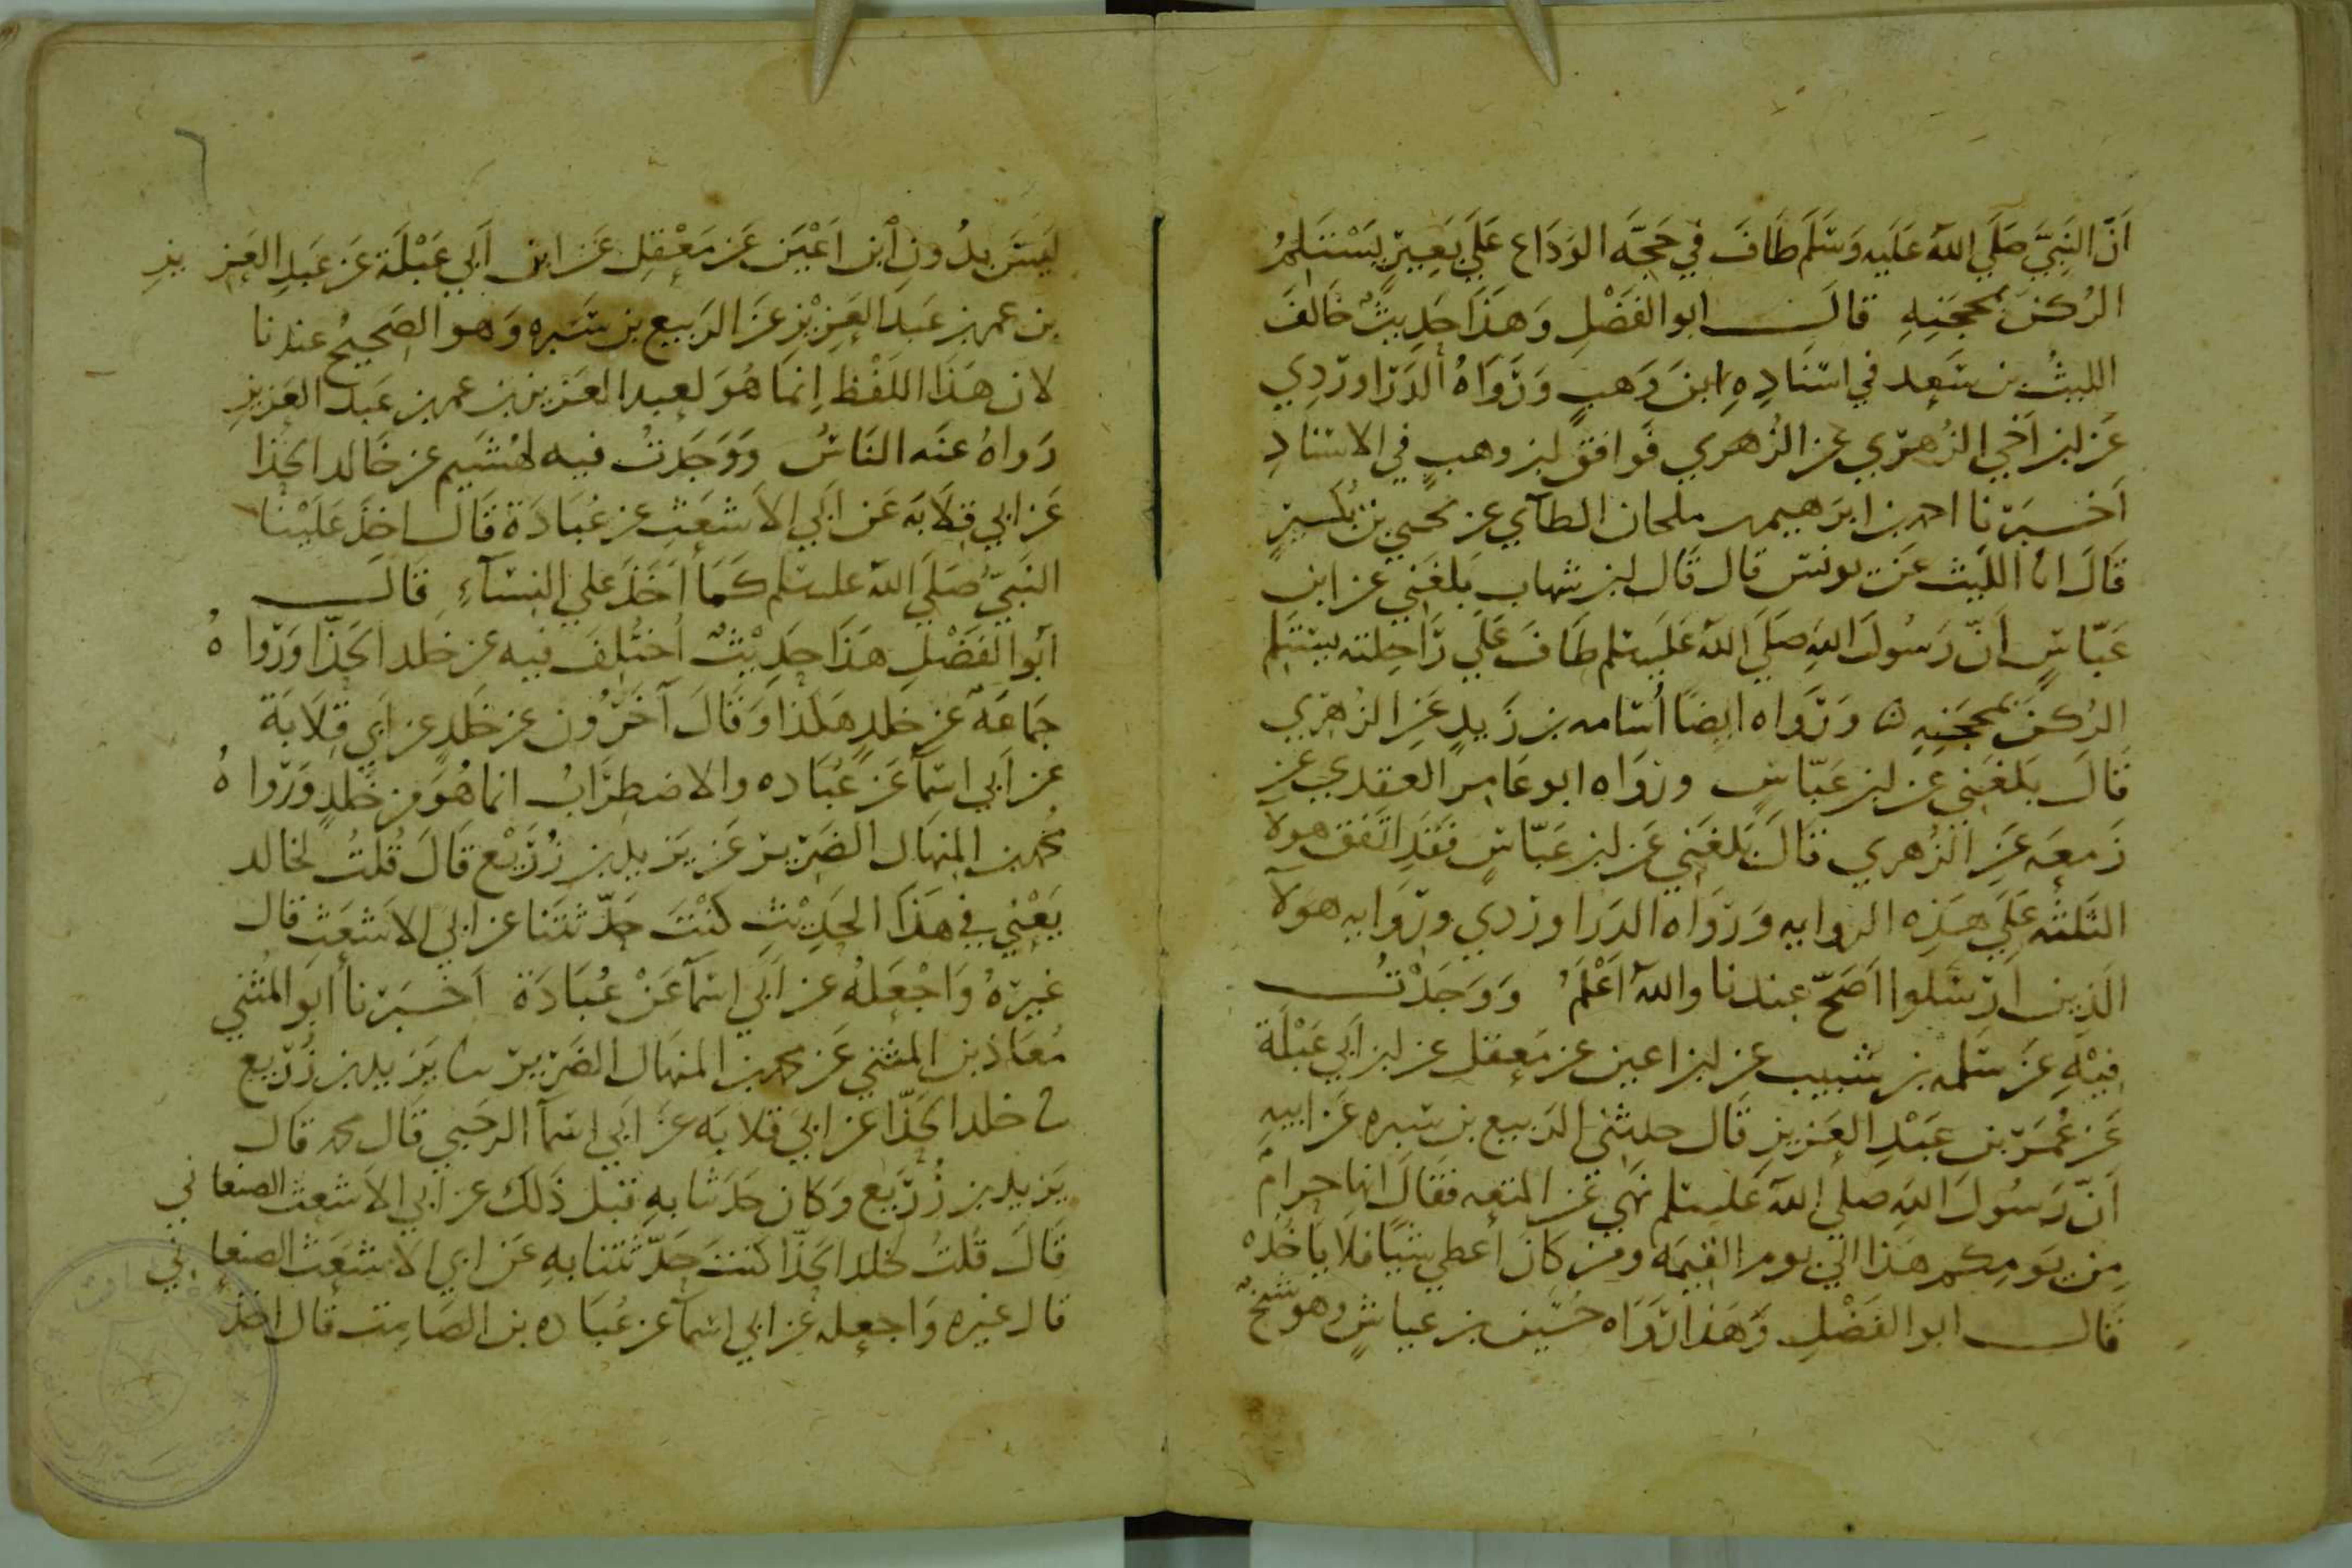 اَنَّ النَبِيَّ صَلَي اللهُ عَلَيه وَسَلَمَ طَافَ في حَجَّه الوَدَاع عَلَي بَعِيرٍ يَسْتَلِمُ
الرُكنَ بمحجَنِهِ قالَ ابو الفَضْلِ وَهَذَا حَدِيثٌ خَالَفَ
الليثُ بن سَعِد في اسنَادِهِ ابنَ وَهبٍ وَرَوَاهُ الدَرَاوردِي
عَن ابن اَخي الزُهرِي عن الزُهري فَوافق ابن وهبٍ في الاسنَادِ
اَخبَرنا احمد بن ابرَهيم بن ملحان الطآي عن يحيي بن بُكَيرٍ
قَالَ انا الليث عَن يونس قال قَال ابن شهاب بَلغَنِي عن ابن
عَبّاسٍ اَنّ رَسُولَ اللهِ صَلَي اللهُ عَلَيه سلم طَافَ عَلَي رَاحِلته يستلم
الرُكنَ بمحجَنِهِ ۞ وَرَواه ايضًا اُسَامه بن زَيدٍ عَنِ الزُهرِي
قَالَ بَلغَنِي عن ابن عَبّاسٍ ورَوَاه ابو عَامِر العقدي عن
زَمعَه عَنِ الزُهري قَالَ بَلغَنِي عَن ابن عَبّاسٍ فقَدِ اتَفَق هولآ
الثلثه عَلَي هَذِه الروايه وَرَوَاه الدَرَاوردي وروَايه هَوَلآ
الَذِين اَرسَلوا اَصَحّ عِندنا واللهُ اَعْلَمُ وَوَجَدْتُ
فيْهِ عَن سَلمه بن شَبيب عن ابن اعين عن مَعقل عن ابن اَبي عَبْلَة
عَن عُمَر بن عَبْدِ العَزيزِ قَال حدثني الرَبيع بن سَبره عَن ابيهِ
اَنّ رَسُولَ اللهِ صلي اللهُ عَليه سلم نَهَي عَن المتعه فقَالَ انها حَرامٌ
مِن يَومِكم هَذا الي يوم القيمَه ومَن كَانَ اَعطي شيًا فلا يَاخُذهُ
قَال ابو الفَضْلِ وَهَذا رَوَاه حُسَين بن عياشٍ وهو شيخٌ
ليَسَ بدُون اُبن اَعْيَن عَن مَعْقِلِ عَن ابن اَبي عَبْلَة عَن عَبدِ العَزيزِ
بن عمر بن عَبدِ العَزِيْزِ عَن الرَبيع بن سَبره وَهو الصَحيحُ عندنا
لان هَذَا اللَفْظ اِنما هُوَ لعبد العَزيز بن عمر بن عَبد العَزيزِ
رَواهُ عنَه النَاسُ وَوَجَدتُ فيه لهُشَيم عن خَالد الحذا
عَن ابي قِلَابَه عَن اَبي الاَشعَثِ عن عُبَادَة قَال اخَذَ عَلَيْنا
النَبيّ صَلَي الله عليه سلم كَمَا اَخَذَ عَلي النِسَآءِ قَالَ
اَبو الفَضْلِ هَذَا حَدِيْثٌ اُختُلِفَ فيه عن خَلد الحَذّا وَرَواهُ
جَمَاعَهٌ عن خلدٍ هَكَذا وَقَالَ آخَرُون عن خَلدٍ عن اَبي قِلَابَة
عن اَبي اسمآ عَن عُبَاده والاضطِرَابُ انما هُوَ من خَلدٍ وَرَواهُ
محُمد بن المنهَال الضَرِير عَن يَزيد بن زُرَيْع قَالَ قُلتُ لخالد
يَعْنِي في هَذَا الحَدِيْثِ كُنْتَ حَدّثتَنا عن ابي الاشعَثِ قال
غيرهُ وَاجْعَلهُ عن اَبي اسمآ عَنْ عُبَادَة اَخبَرنا ابَو المثني
مُعَاذ بن المثني عَن محمد بن المنهَال الضَرِير نا يَزيد بن زُرَيع
نا خلد الحَذّا عن ابي قلابَه عَن ابَي اسمآ الرحَبي قَال محمد قَال
يَزيد بن زُرَيع وَكان حَدثنَا بهِ قبل ذَلكَ عن اَبي الاَشعث الصنعاني
قَالَ قُلتُ لخلد الحَذّا كنتَ حَدّثتَنا بهِ عَن ابي الاشعَث الصنعاني
قال غيره وَاجعله عن ابي اسمآ عن عُبَاده بن الصَامِت قال اخذ